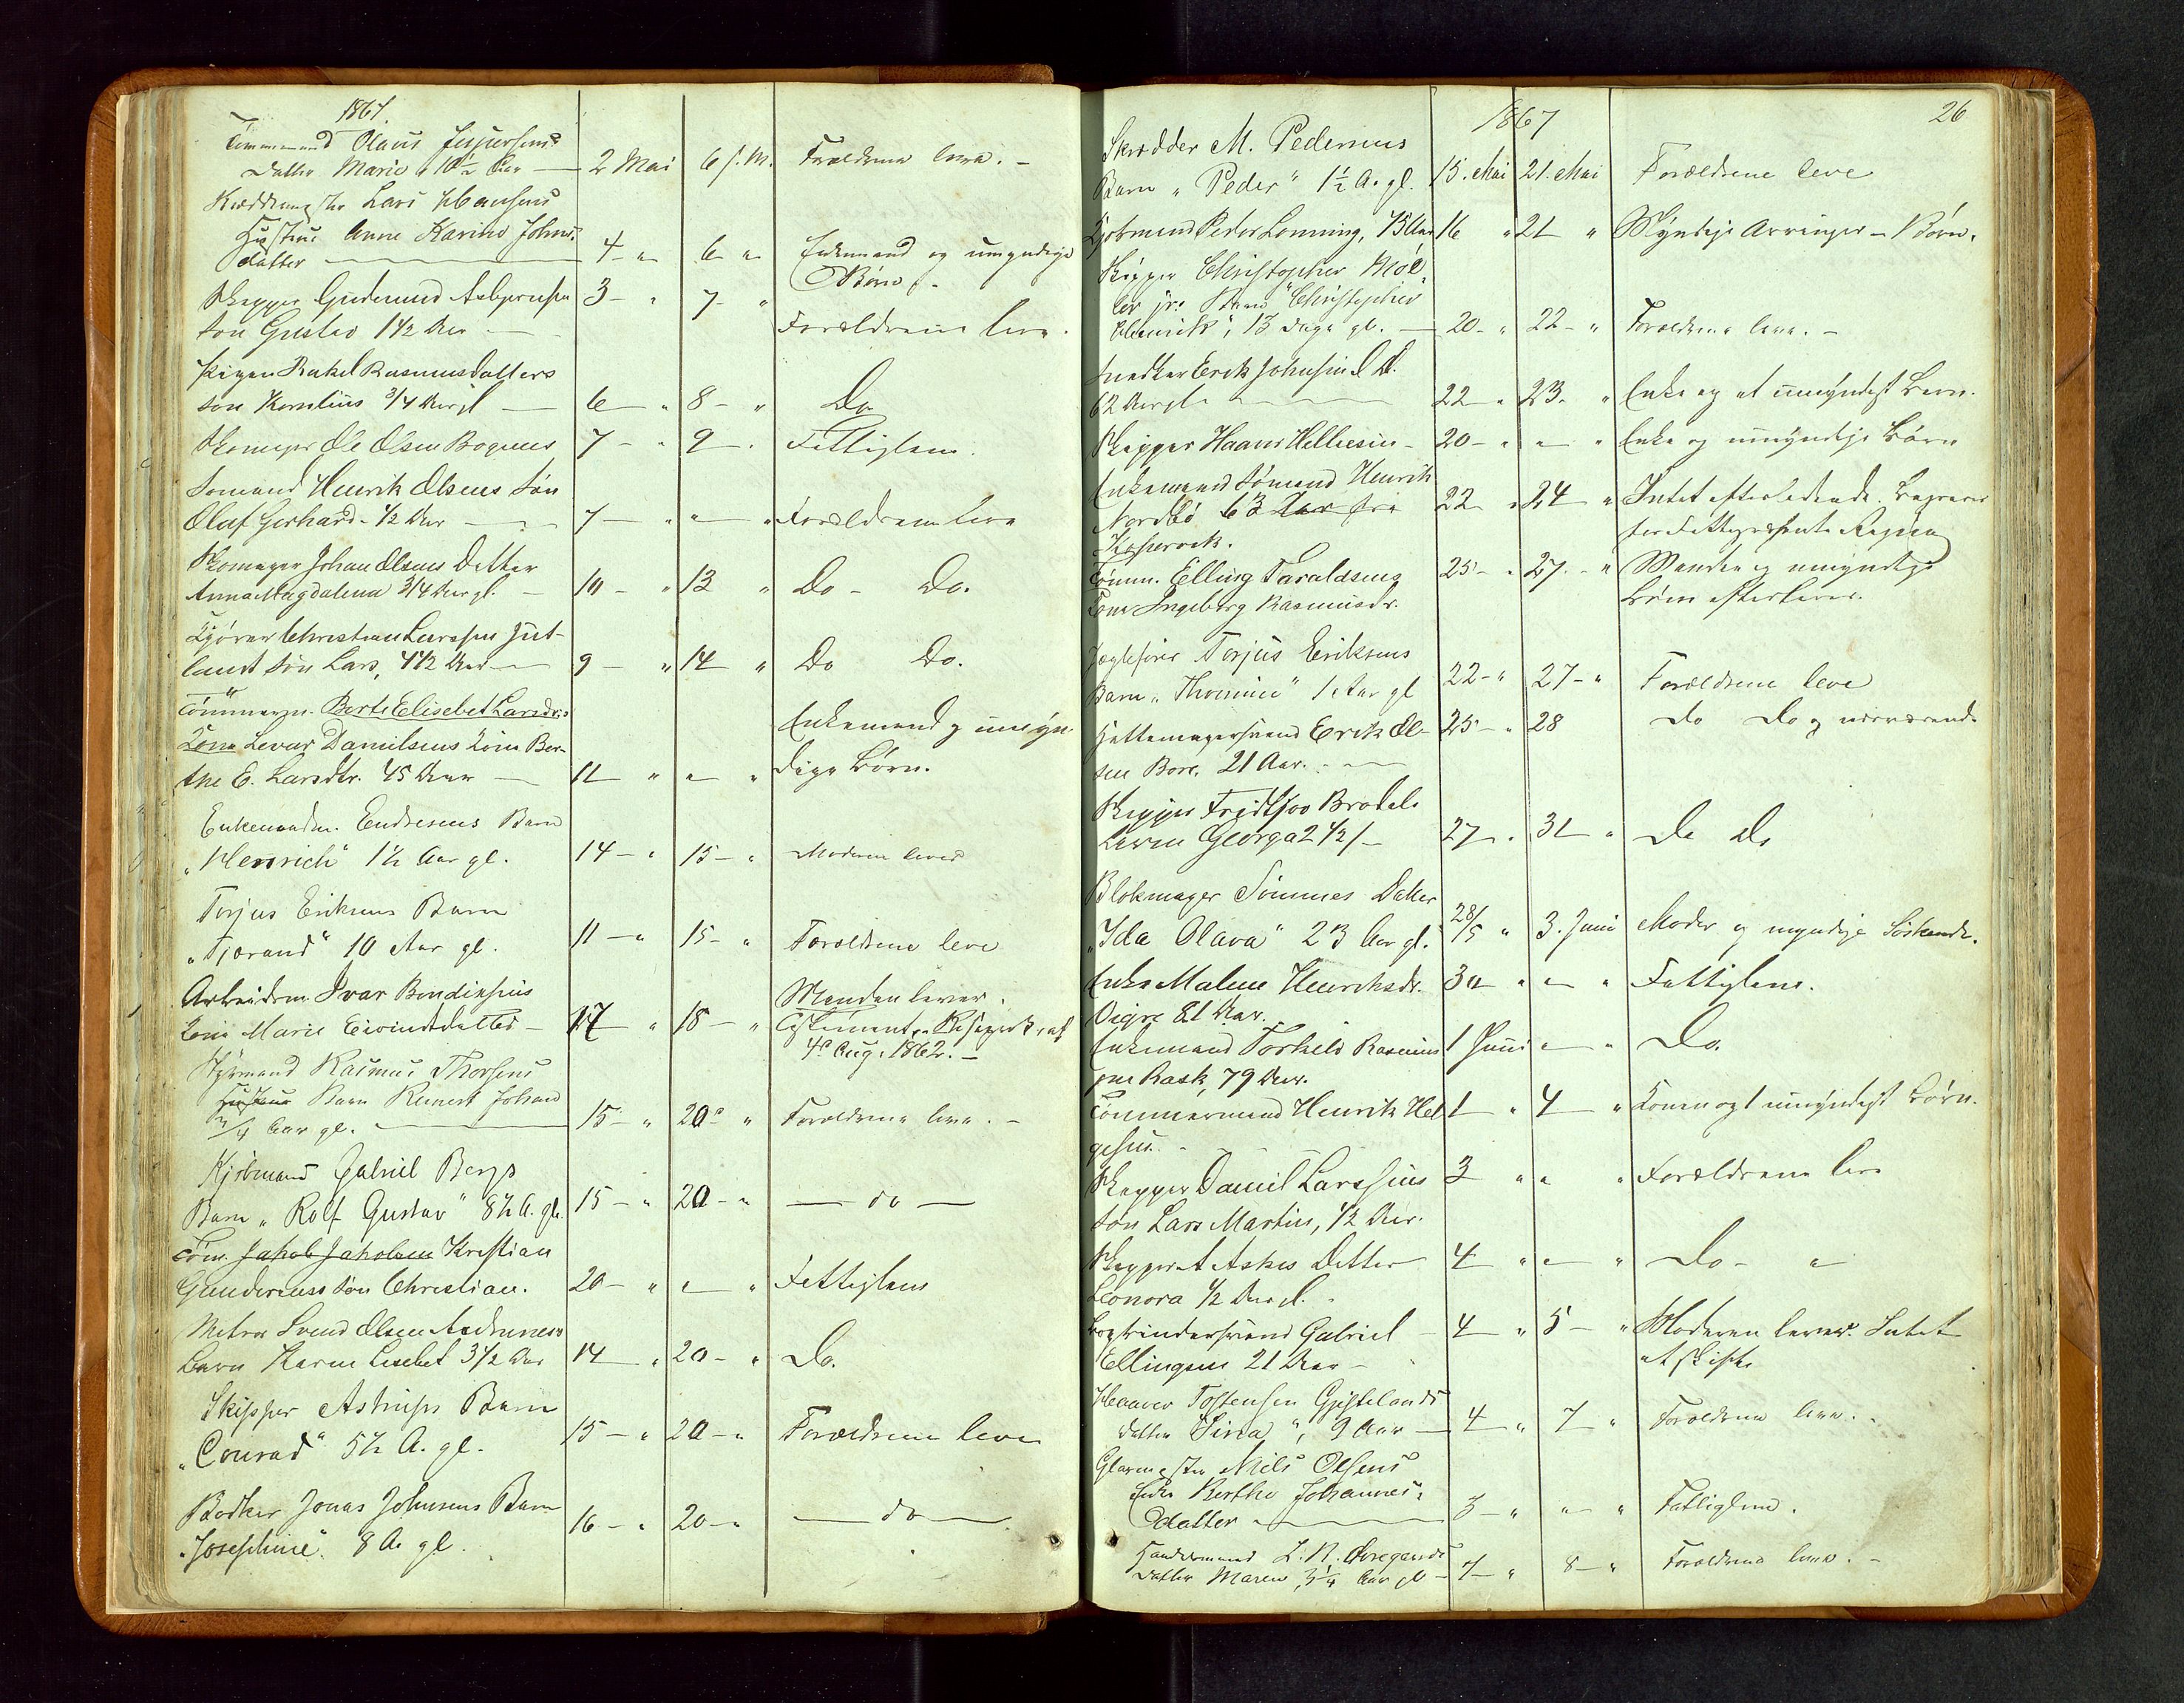 1867.
Tømmermand Olaus Jespersens
Datter Marie, 10½ Aar — 2 Mai 6 f. M. Forældrene leve. —
Lars Hansens
Hustru Anne Karine Johns-
datter — 4 - " 6 " Enkemand og umyndige
Børn.
Skipper Gudmund Asbjørnsen 3 - " 7 - "
Søn Gustav 1 1/2 Aar — Forældrene leve.
Pigen Rakel Rasmusdatters
Søn Kornelius 3/4 Aar gl — 6 " 8 - " Do
Skomager Ole Olsen Bognes 7 - " 9 - " Fattiglem.
Sømand Henrik Olsens Søn
Olaf Gerhard - 1/2 Aar — 7 — " " — " Forældrene leve
Skomager Johan Olsens Datter
Anna Magdalena 3/4 Aar gl. — 10 - " 13 " Do - Do.
Kjører Christian Larsen Jut-
land Søn Lars, 4 1/2 Aar — 9 - " 14 " Do Do.
Tømmerm. Berte Elisebet Larsdr.
Kone Levar Danielsens Kone Ber-
the E. Larsdtr. 45 Aar — 11 " " " Enkemand og umyn-
dige Børn.
Enkemadm. Endresens Barn
"Henrich" 1½ Aar gl. 14 - " 15 - " Moderen lever
Torjus Eriksens Barn
"Tjerand" 10 Aar gl. 11 - " 15 - " Forældrene leve
Arbeidsm. Ivar Bendiksens
Kone Marie Eivindsdatter — 17 " 18 - " Manden lever.
Testament, Reskript af
4de Aug. 1862. —
Styrmand Rasmus Thorsens
Hustrue Barn Reinert Johan
3/4 Aar gl. — 15 - " 20 - " Forældrene leve. —
Kjøbmand Gabriel Bergs
Barn "Rolf Gustav" 8½ A. gl. 15 - " 20 - " — do —
Tøm. Jakob Jakobsen Kristian
Gundersens Søn Christian. 20 - " " " Fattiglem
Svend Olsen
Barn Karen Lisebet 3 1/2 Aar 14 " 20 - " Do.
Skipper Astrups Barn
"Conrad" 5½ A. gl. 15 - " 20 - " Forældrene leve
Bødker Jonas Johnsens Barn
"Josephine" 8 A. gl. 16 - " 20 - " — do —
1867
26
Skrædder M. Pedersens
Barn "Peder" 1½ A. gl. 15. Mai 21. Mai Forældrene leve
Kjøbmand Peder Lonning, 75 Aar 16 " 21 " Myndige Arvinger - Børn.
Skipper Christopher Møl-
ler jr. Barn "Christopher
Henrik", 13 Dage gl. — 20 - " 22 - " Forældrene leve. —
Snedker Erik Johnsen
62 Aar gl. — 22 " 23 - " Enke og et umyndigt Barn.
Skipper Haavr Helliesen — 20 - " " " Enke og umyndige Børn
Enkemand Sømand Henrik
Nordbø 63 Aar fra 22 " 24 " Intet efterladende. Begraves
Kopervik. for Fattigvæsenets Regning
Tømm. Elling Taraldsens 25 - " 27 - " Manden og umyndige
Kone Ingeborg Rasmusdr. Børn efterlever.
Torjus Eriksens
Barn "Thomine" 1 Aar gl 22 - " 27 - " Forældrene leve
Hattemagersvend Erik Ol- 25 - " 28 Do Do og nærværende
sen Bore, 21 Aar. —
Skipper Fridtjov Brodals
Barn Georga 2 1/2 / — 27 - " 31 " Do Do
Blokmager Sømmes Datter
"Ida Olava" 23 Aar gl. 28/5 " 3. Juni Moder og myndige Søskende.
Enke Malene Henriksdr. 30 " " " Fattiglem.
Vigre 81 Aar.
Enkemand Torkild Rasmus- 1 Juni " " Do.
sen Rask, 79 Aar.
Tømmermand Henrik Hel- 1 " 4 " Konen og 1 umyndigt Børn.
gesen. —
Skipper Daniel Larssens 3 " " " Forældrene leve
Søn Lars Martin, 1/2 Aar.
Skipper A Askes Datter 4 " " " Do - "
Leonora 1/2 Aar gl. -
Bogtrindersvend Gabriel — 4 " 5 - " Moderen lever. Intet
Ellingsen 21 Aar — at skifte
Haaver Tostensen Gjestelands
Datter "Sina", 9 Aar — 4 " 7 " Forældrene leve. -
Glarmester Niels Olsens
Enke Berthe Johannes-
datter — 3 - " " — " Fattiglem.
Handelsmand L. N. Øregaards
Datter Maren, 3¼ Aar gl — 7 - " 8 - " Forældrene leve. —